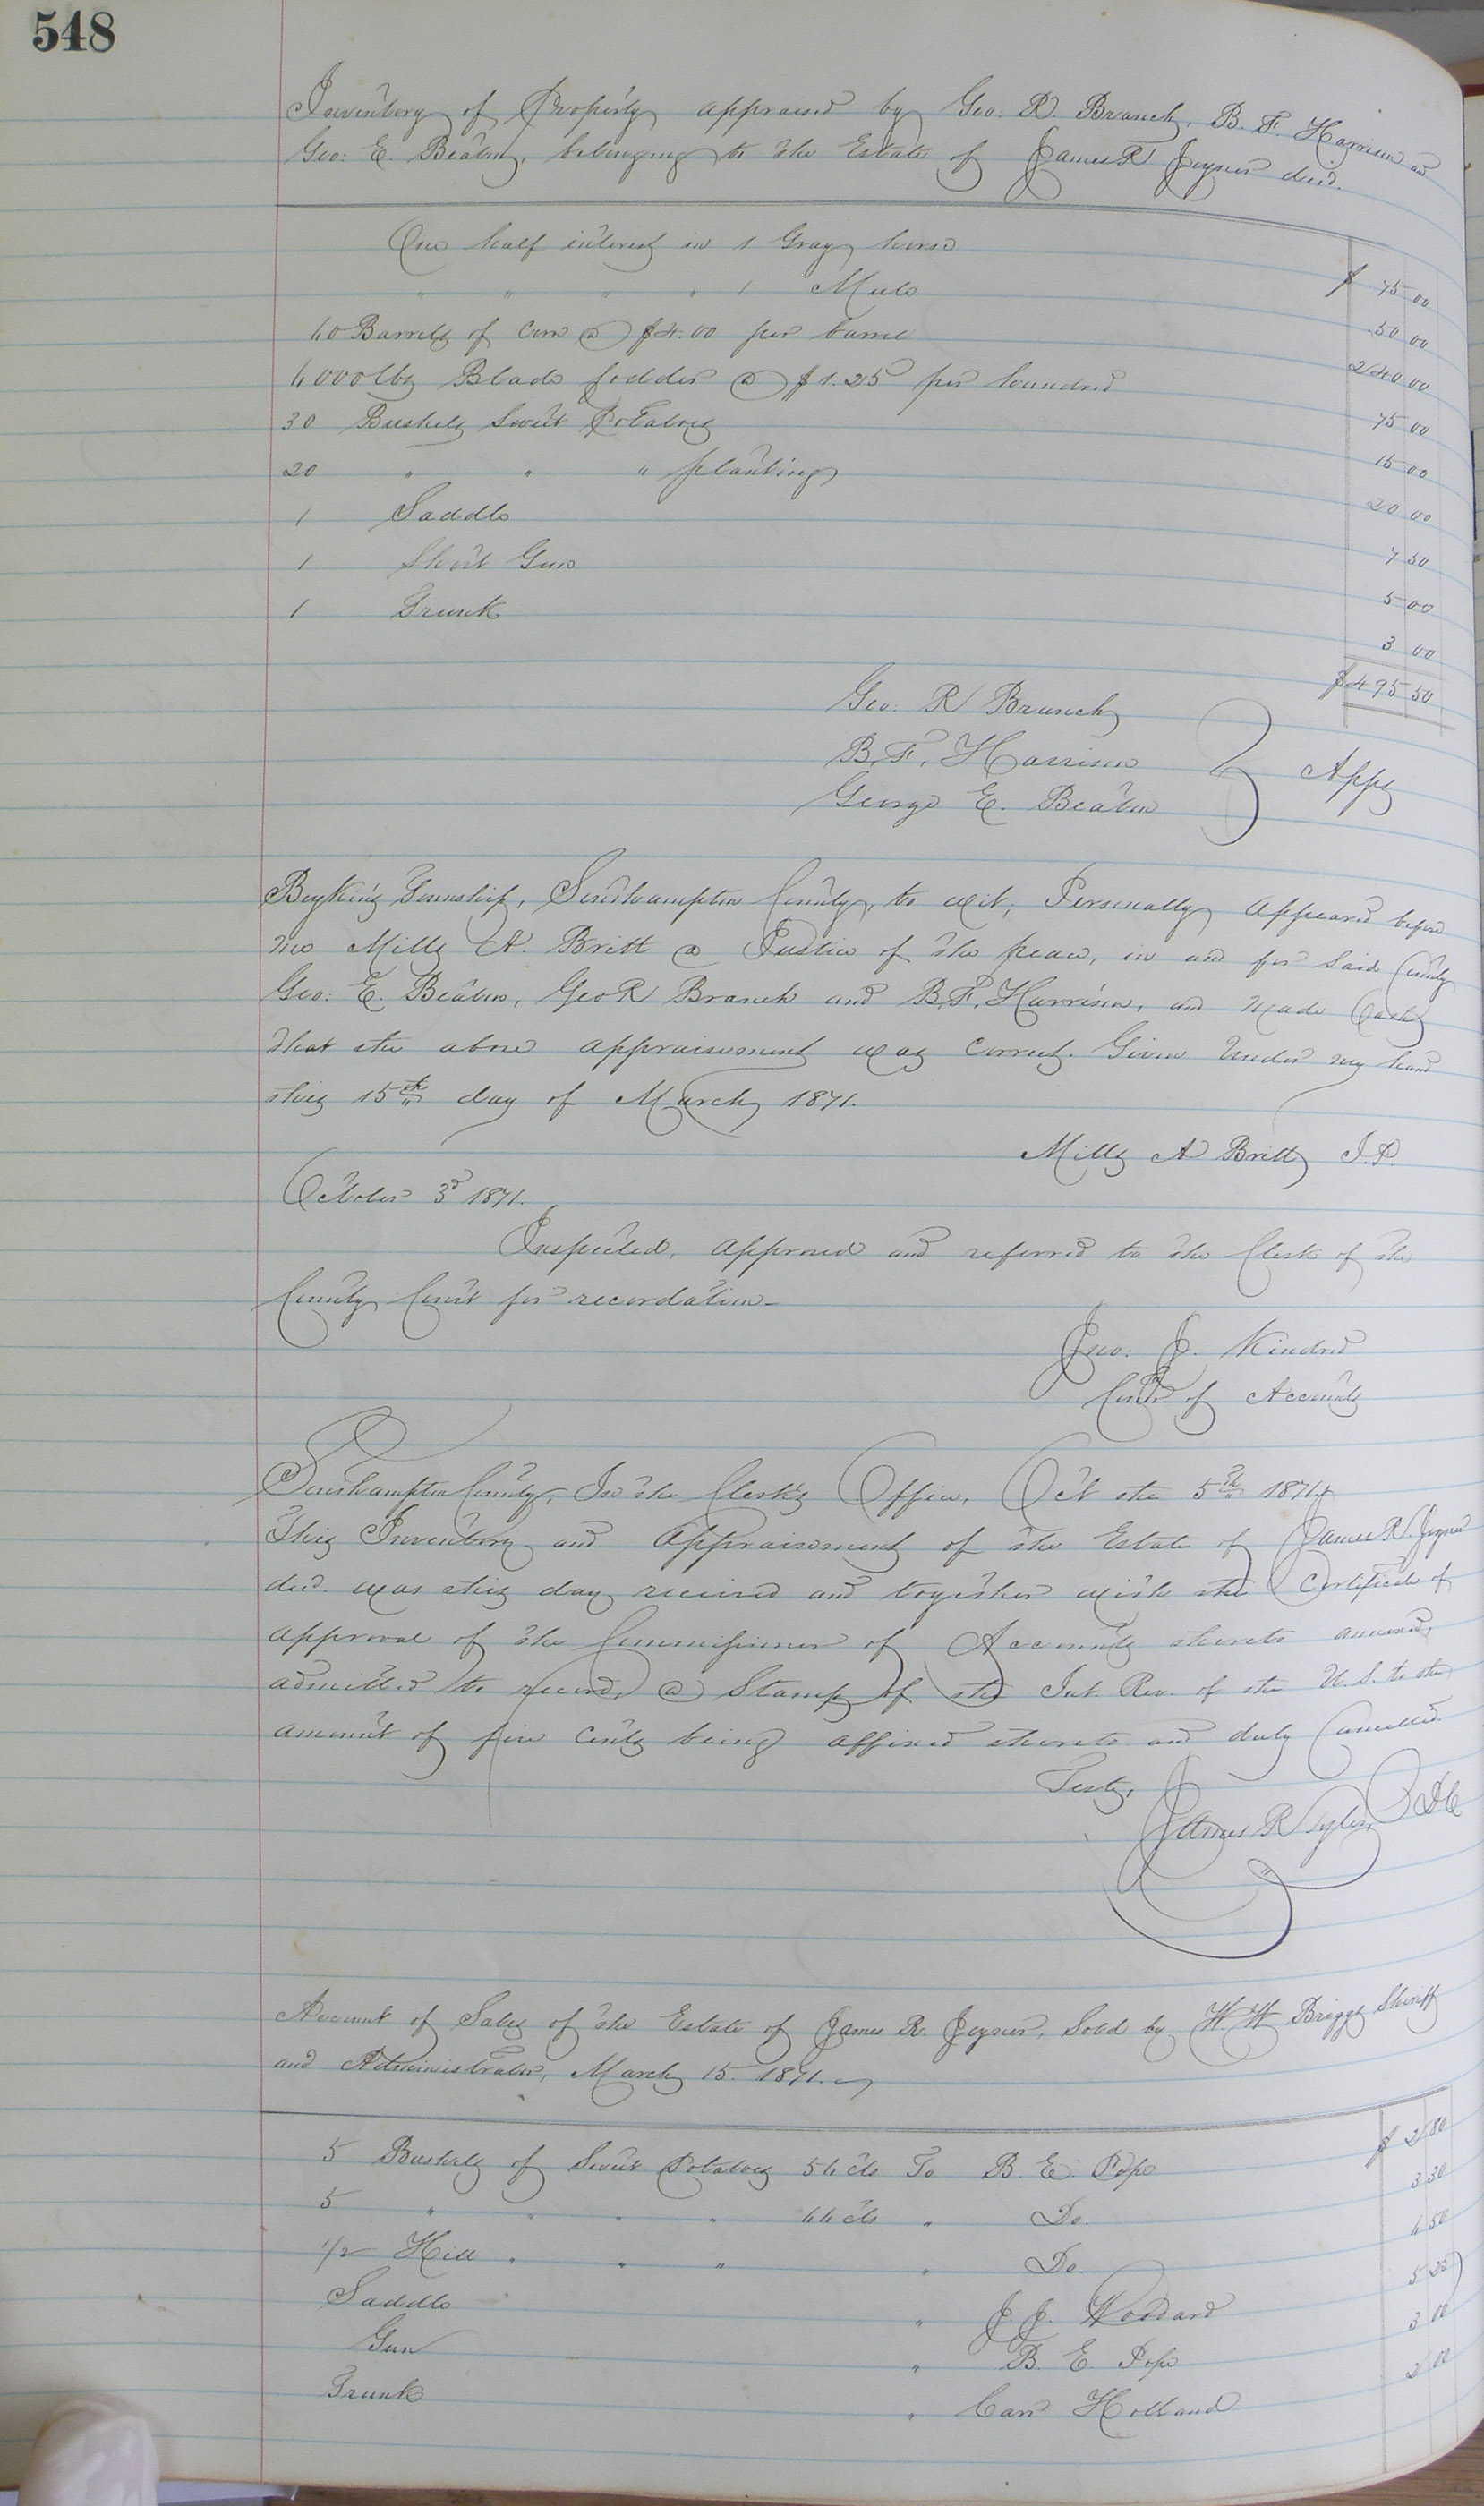 548
Inventory of Property appraised by Geo: R. Branch, B. F. Harrison and
Geo: E. Beaton, belonging to the Estate of James R Joyner decd.
One half interest in 1 Gray horse $ 75 00
" " " " 1 Mule 50 00
60 Barrels of Corn @ $4.00 per barrel 240 00
6000 lbs Blade fodder @ $1.25 per hundred 75 00
30 Bushels Sweet Potatoes 15 00
20 " " " planting 20 00
1 Saddle 7 50
1 Shot Gun 5 00
1 Trunk 3 00
$495 50
Geo: R Branch
B. F. Harrison
George E. Beaton
Apps
Boykins Township, Southampton County, to wit; Personally appeared before
me Mills A. Britt a Justice of the peace, in and for said County
Geo: E. Beaton, Geo R Branch and B. F. Harrison, and made Oath
that the above appraisement was correct. Given under my hand
this 15th day of March 1871.
Mills A Britt J.P.
October 3d 1871.
Inspected, approved and referred to the Clerk of the
County Court for recordation-
Jno: J. Kindred
Comr. of Accounts
Southampton County, In the Clerk's Office, Oct the 5th 1871,
This Inventory and Appraisement of the Estate of James R. Joyner
decd. was this day received and together with the Certificate of
approval of the Commissioner of Accounts thereto annexed,
admitted to record, a Stamp of the Int. Rev. of the U. S. to the
amount of five Cents being affixed thereto and duly Cancelled.
Teste,
James R Tyler, D.C
Account of Sales of the Estate of James R. Joyner, Sold by W W Briggs Sheriff
and Administrator, March 15. 1871.
5 Bushels of Sweet Potatoes 56 cts To B. E. Pope $ 2 80
5 " " " " 66 cts " Do. 3 30
1/2 Hill " " " " Do. 6 50
Saddle " J. J. Woodard 5 25
Gun " B. E. Pope 3 00
Trunk " Carr Holland 2 00